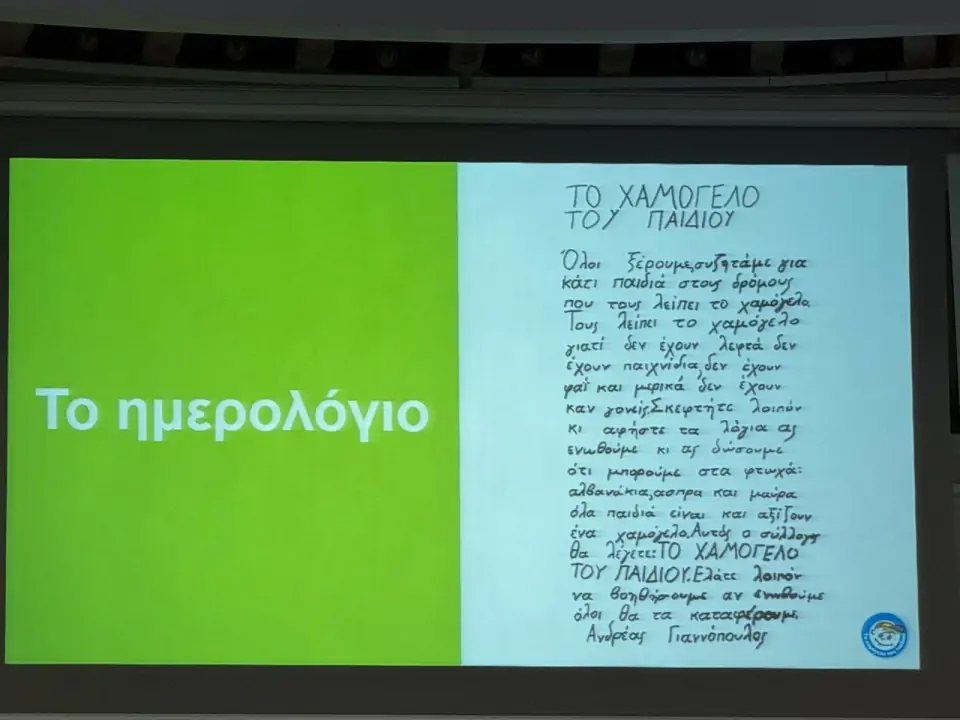 Το ημερολόγιο
ΤΟ ΧΑΜΟΓΕΛΟ
ΤΟΥ ΠΑΙΔΙΟΥ
Όλοι ξέρουμε,συζητάμε για
κάτι παιδιά στους δρόμους
που τους λείπει το χαμόγελο.
Τους λείπει το χαμόγελο
γιατί δεν έχουν λεφτά δεν
έχουν παιχνίδια,δεν έχουν
φαΐ και μερικά δεν έχουν
καν γονείς.Σκεφτήτε λοιπόν
κι αφήστε τα λόγια ας
ενωθούμε κι ας δώσουμε
ότι μπορούμε στα φτωχά:
αλβανάκια,ασπρα και μαύρα
όλα παιδιά είναι και αξίζουν
ένα χαμόγελο.Αυτός ο σύλλογος
θα λέγετε:ΤΟ ΧΑΜΟΓΕΛΟ
ΤΟΥ ΠΑΙΔΙΟΥ.Ελάτε λοιπόν
να βοηθήσουμε αν ενωθούμε
όλοι θα τα καταφέρουμε.
Ανδρέας Γιαννόπουλος